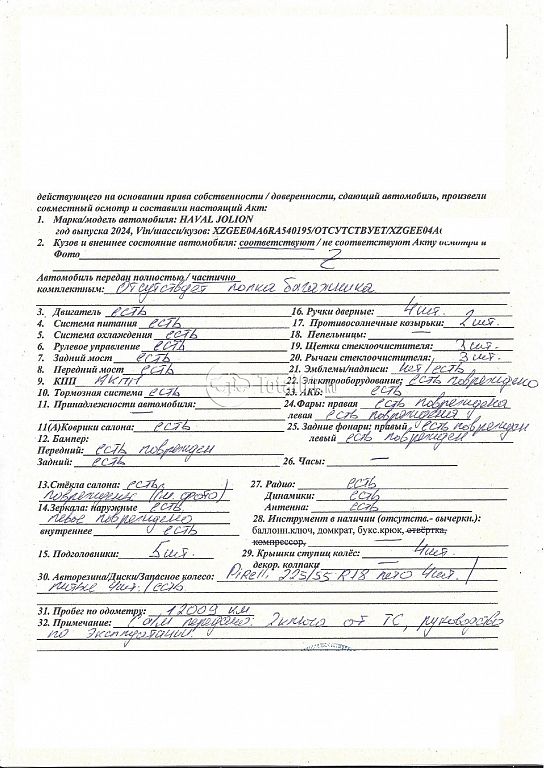 действующего на основании права собственности / доверенности, сдающий автомобиль, произвели
совместный осмотр и составили настоящий Акт:
1. Марка/модель автомобиля: HAVAL JOLION
год выпуска 2024, Vin/шасси/кузов: XZGEE04A6RA540195/ОТСУТСТВУЕТ/XZGEE04A
2. Кузов и внешнее состояние автомобиля: соответствуют / не соответствуют Акту осмотра и
Фото
Автомобиль передан полностью / частично
комплектным: отсутствует полка багажника
3. Двигатель есть
4. Система питания есть
5. Система охлаждения есть
6. Рулевое управление есть
7. Задний мост есть
8. Передний мост есть
9. КПП АКПП
10. Тормозная система есть
11. Принадлежности автомобиля:
11(А)Коврики салона: есть
12. Бампер:
Передний: есть поврежден
Задний: есть
16. Ручки дверные: 4 шт.
17. Противосолнечные козырьки: 2 шт.
18. Пепельницы: —
19. Щетки стеклоочистителя: 3 шт.
20. Рычаги стеклоочистителя: 3 шт.
21. Эмблемы/надписи: /есть
22. Электрооборудование: есть повреждено
23. АКБ: есть
24.Фары: правая есть повреждена
левая есть повреждения
25. Задние фонари: правый есть поврежден
левый есть поврежден
26. Часы: —
13.Стёкла салона: есть
повреждения (см. фото)
14.Зеркала: наружные есть
левое повреждено
внутреннее есть
15. Подголовники: 5 шт.
27. Радио: есть
Динамики: есть
Антенна: есть
28. Инструмент в наличии (отсутств.- вычеркн.):
баллонн.ключ, домкрат, букс.крюк, отвёртка,
компрессор,
29. Крышки ступиц колёс: 4 шт.
декор. колпаки —
30. Авторезина/Диски/Запасное колесо: Pirelli 225/55 R18 лето 4 шт. /
литые 4 шт. / есть
31. Пробег по одометру: 12009 км
32. Примечание: передано: 2 ключа от ТС, руководство
по эксплуатации.